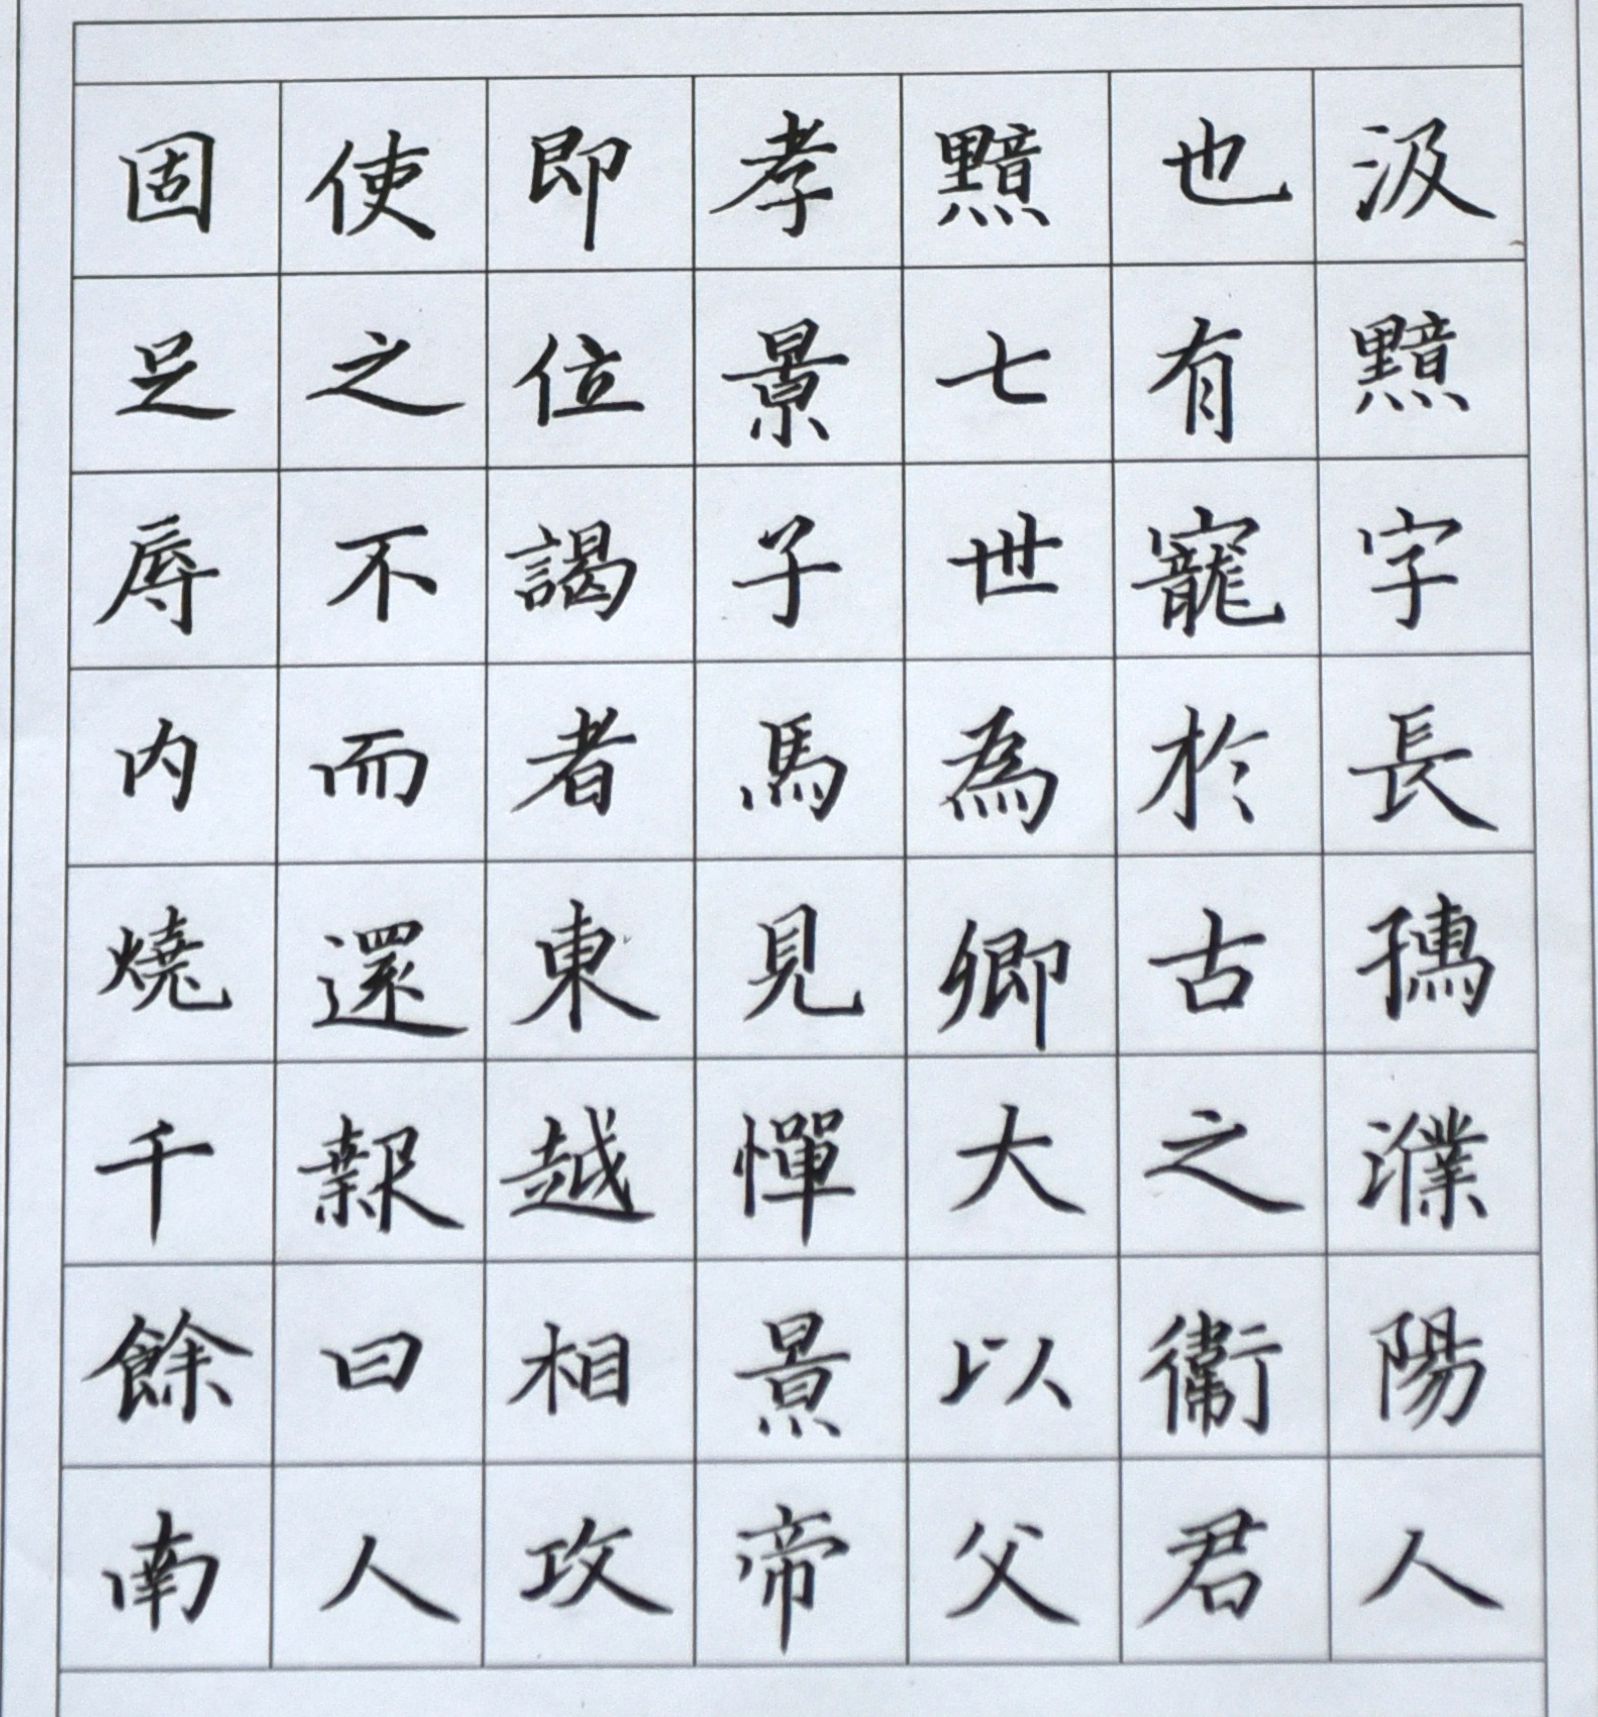 汲黯字長孺濮陽人
也有寵於古之衛君
黯七世為卿大以父
孝景子馬見憚景帝
即位謁者東越相攻
使之不而還報曰人
固足辱内燒千餘南